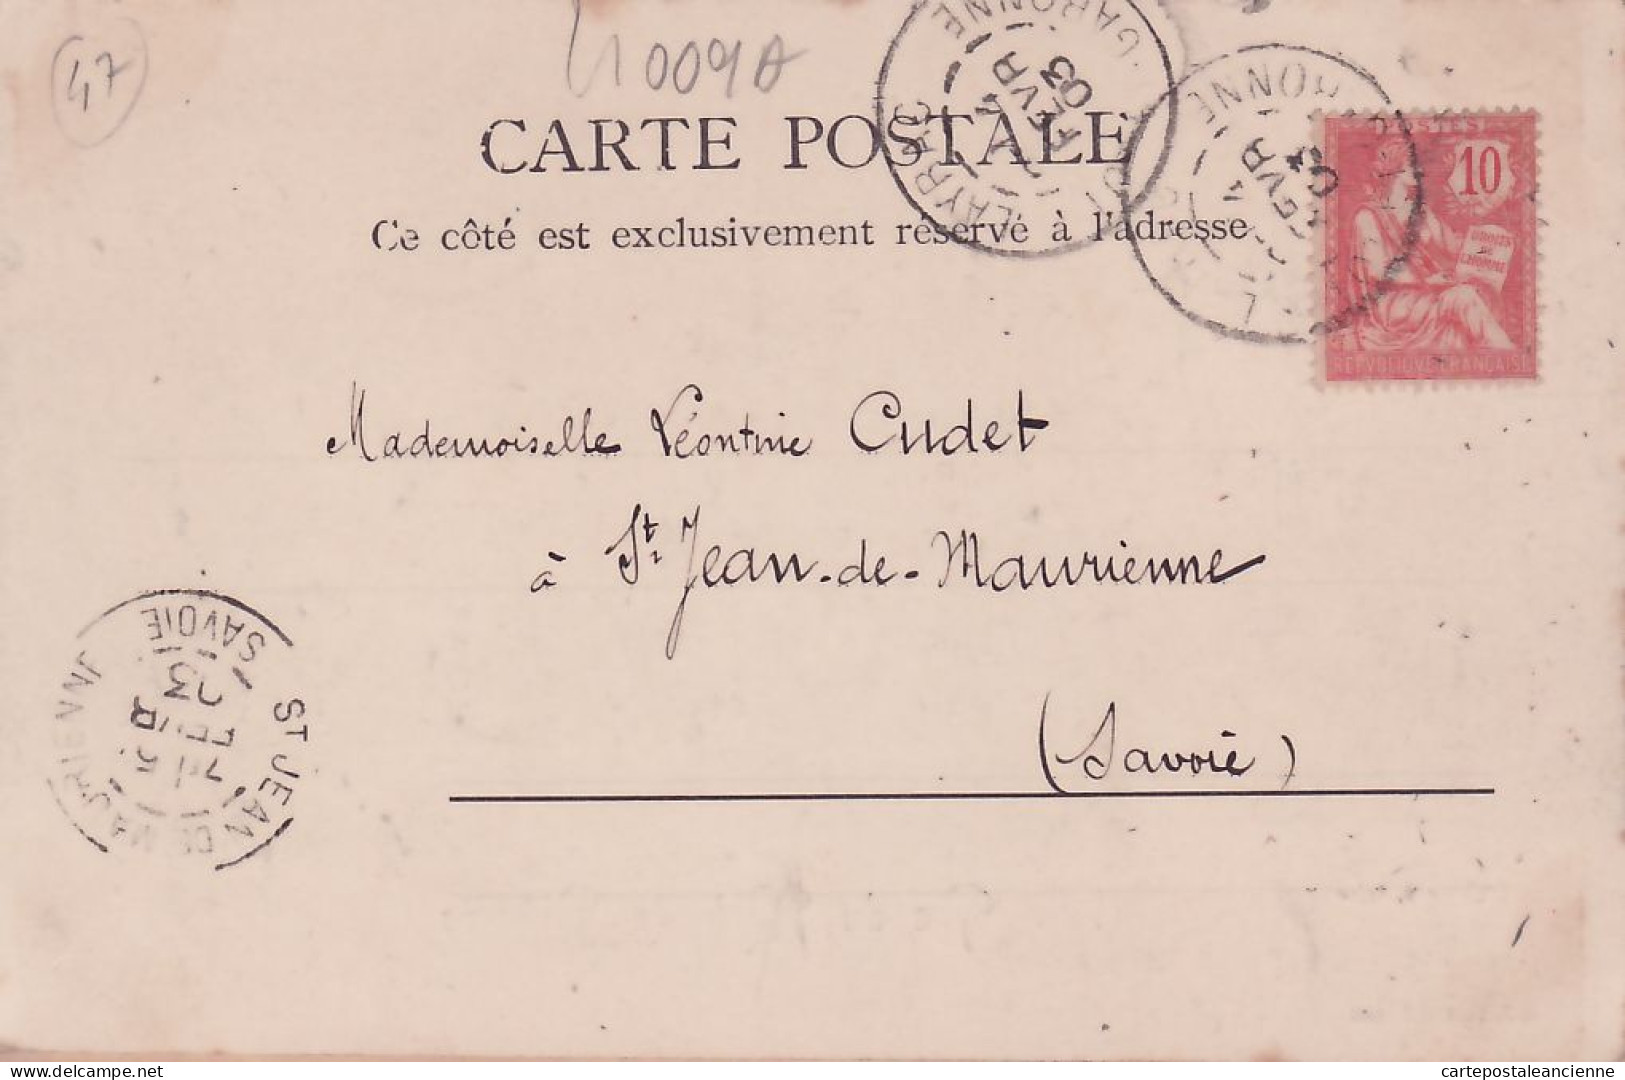 47
41009A
CARTE POSTALE
Ce côté est exclusivement réservé à l'adresse
LAYRAC
LOT-ET-GARONNE
4 FEVR 03
POSTES
10
DROITS DE L'HOMME
REPVBLIQVE FRANÇAISE
Mademoiselle Léontine Cudet
à St. Jean-de-Maurienne
(Savoie)
ST JEAN DE MAURIENNE
SAVOIE
delcampe.net
cartepostaleancienne